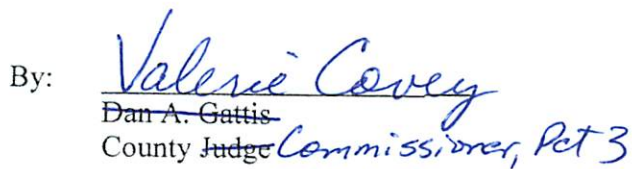 By: Valerie Covey
Dan A. Gattis
County Judge Commissioner, Pct 3